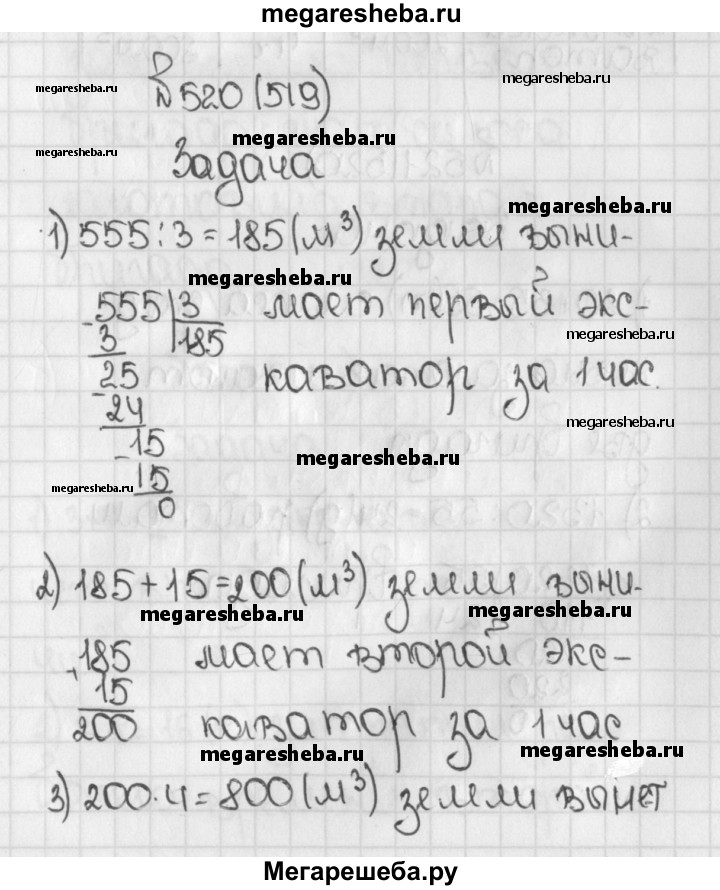 megaresheba.ru
№520 (519)
megaresheba.ru
megaresheba.ru
megaresheba.ru
Задача
megaresheba.ru
megaresheba.ru
1) 555:3=185(м³) земли выни-
megaresheba.ru
555|3 мает первый экс-
-3 185
megaresheba.ru
25 каватор за 1 час.
-24
megaresheba.ru
-15
megaresheba.ru
15
megaresheba.ru
0
2) 185+15=200(м³) земли выни-
megaresheba.ru
megaresheba.ru
+185 мает второй экс-
15
200 каватор за 1 час
megaresheba.ru
megaresheba.ru
3) 200·4=800(м³) земли вынет
Мегарешеба.ру